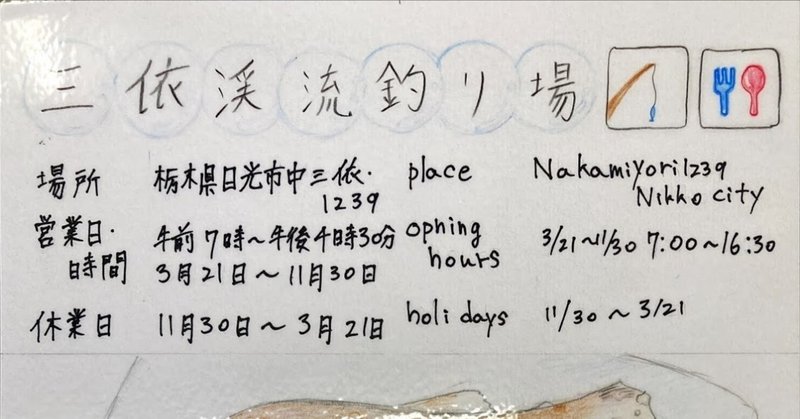 三依渓流釣り場
場所 栃木県日光市中三依・ place Nakamiyori1239
1239 Nikko city
営業日・ 午前7時〜午後4時30分 opning 3/21〜11/30 7:00〜16:30
時間 3月21日〜11月30日 hours
休業日 11月30日〜3月21日 holidays 11/30〜3/21